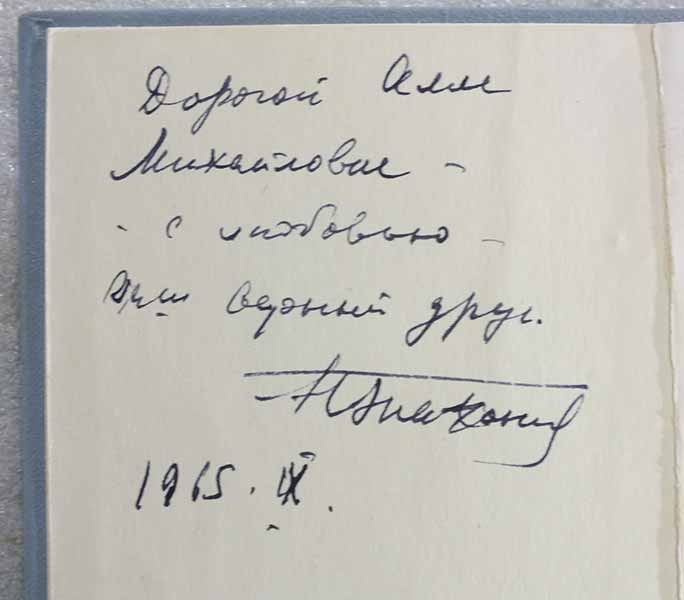 Дорогой Алле
Михайловне -
- с любовью -
Ваш верный друг.
1965. IX.